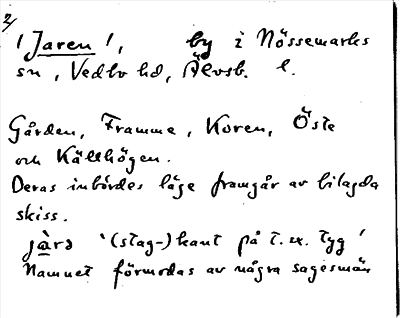 2/
'Jaren', by i Nössemarks
sn, Vedbo hd, Älvsb. l.
Gården, Framme, Koren, Öste
och Källhögen.
Deras inbördes läge framgår av bilagda
skiss.
jàrə '(stag-) kant på t.ex. tyg'
Namnet förmodas av några sagesmän